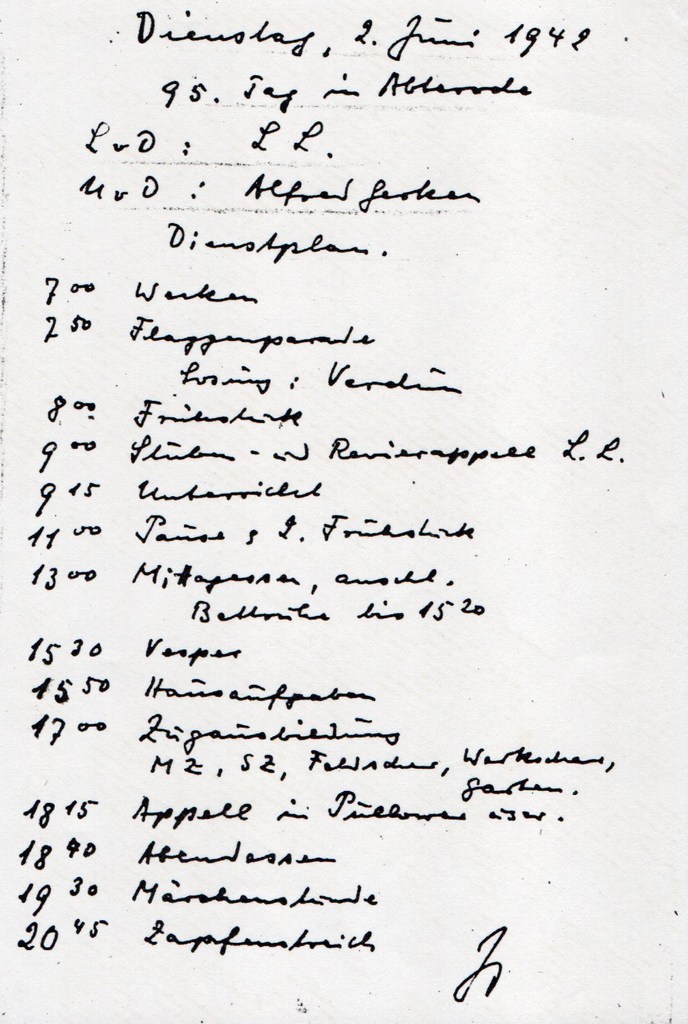 Dienstag, 2. Juni 1942
95. Tag in Abterode
L v D : L L.
U v D : Alfred Gerken
Dienstplan.
7 00 Wecken
7 50 Flaggenparade
Losung : Verdun
8 00 Frühstück
9 00 Stuben - und Revierappell L. L.
9 15 Unterricht
11 00 Pause & 2. Frühstück
13 00 Mittagessen, anschl.
Bettruhe bis 15 20
15 30 Vesper
15 50 Hausaufgaben
17 00 Zugausbildung
MZ, SZ, Feldscher, Werkscher,
Garten.
18 15 Appell in Pullover usw.
18 40 Abendessen
19 30 Märchenstunde
20 45 Zapfenstreich